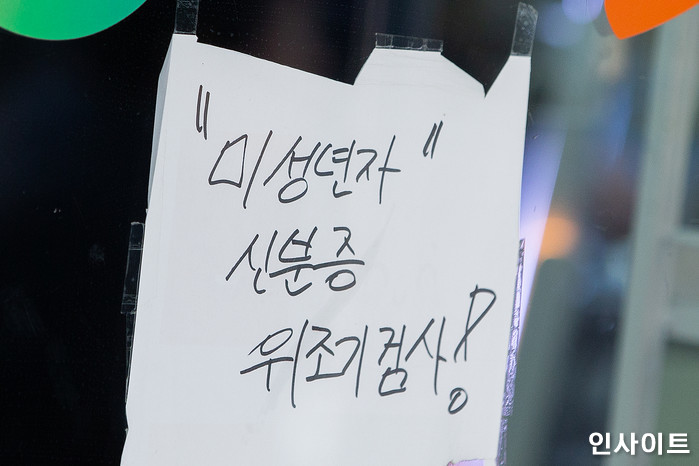 "미성년자"
신분증
위조기검사!
인사이트